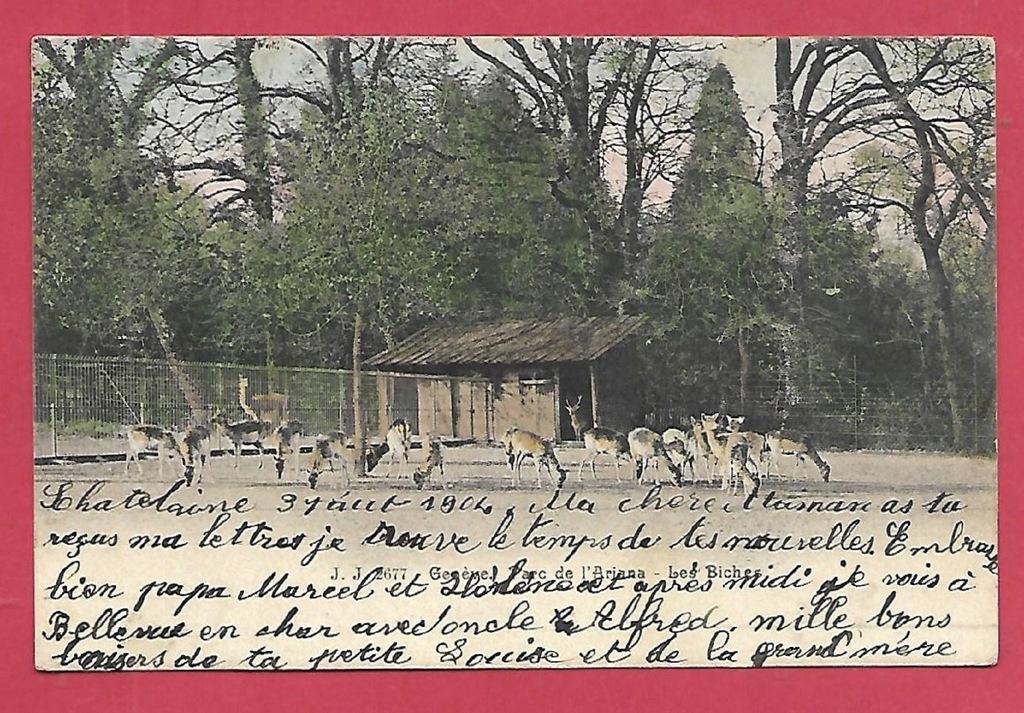 Chatelaine 3 Aout 1904. Ma chere Maman as tu
reçus ma lettres je trouve le temps de tes nouvelles. Embrasse
J. J. 2677 - Genève. Parc de l'Ariana - Les Biches
bien papa Marcel et et après midi je vais à
Bellevue en char avec oncle Alfred. mille bons
baisers de ta petite Louise et de la grand mère